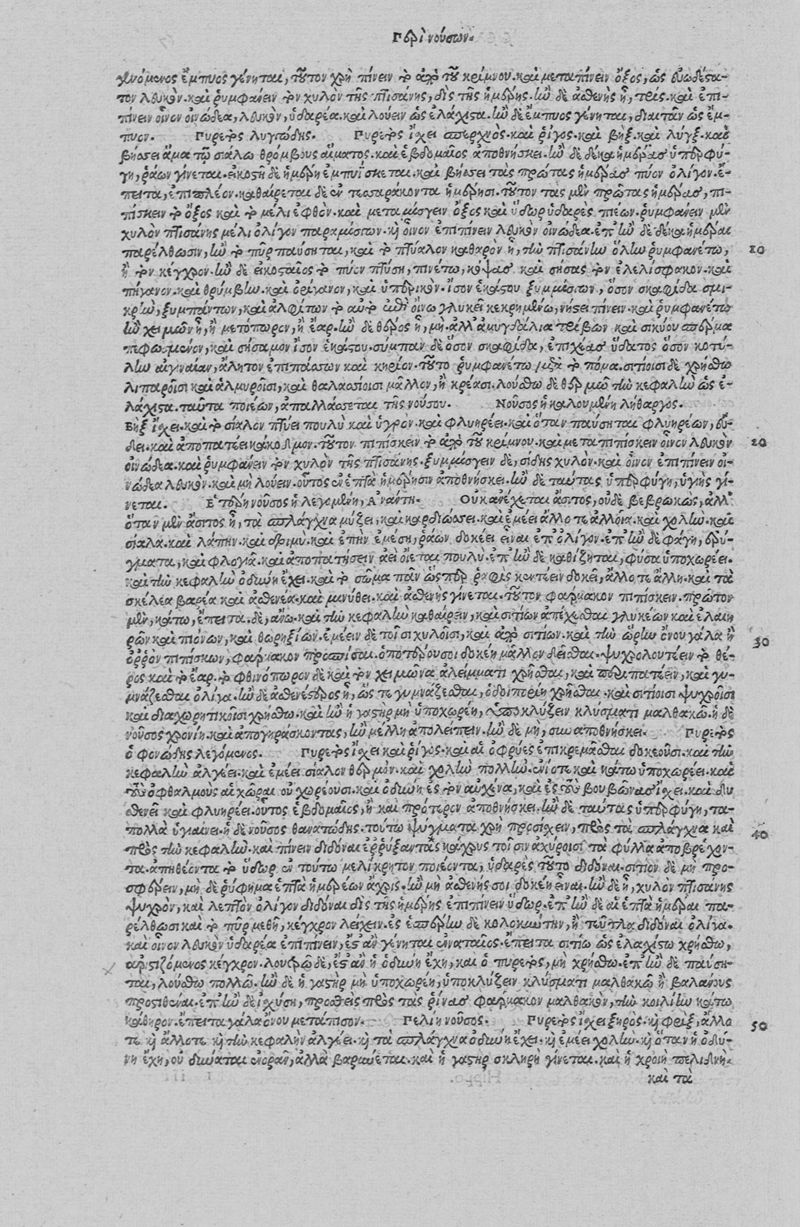 Περὶ νούσων.
γενόμενος ἔμπυος γένηται, τοῦτον χρὴ πίνειν τὸ ἀπὸ τοῦ κρίμνου. καὶ μεταπίνειν ὄξος, ὡς εὐωδέστα-
τον λευκόν. καὶ ῥυμφαίνειν τὸν χυλὸν τῆς πτισάνης, δὶς τῆς ἡμέρης. ἢν δὲ ἀσθενὴς ᾖ, τρίς. καὶ ἐπι-
πίνειν οἶνον οἰνώδεα, λευκὸν, ὑδαρέα. καὶ λούειν ὡς ἐλάχιστα. ἢν δὲ ἔμπυος γένηται, διαιτᾶν ὡς ἔμ-
πυον. Πυρετὸς λυγγώδης. Πυρετὸς ἴσχει σπερχνὸς. καὶ ῥῖγος. καὶ βὴξ. καὶ λύγξ. καὶ
βήσσει ἅμα τῷ σιάλῳ θρόμβους αἵματος. καὶ ἑβδομαῖος ἀποθνήσκει. ἢν δὲ δέκα ἡμέρας ὑπερφύ-
γῃ, ῥᾴων γίνεται. εἰκοστῇ δὲ ἡμέρῃ ἐμπυΐσκεται. καὶ βήσσει τὰς πρώτας ἡμέρας πύον ὀλίγον. ἔ-
πειτα, ἐπιπλέον. καθαίρεται δὲ ἐν τεσσαράκοντα ἡμέρῃσι. τοῦτον τὰς μὲν πρώτας ἡμέρας, πι-
πίσκειν τὸ ὄξος καὶ τὸ μέλι ἑφθόν. καὶ μεταμίσγειν ὄξος καὶ ὕδωρ ὑδαρὲς πιέων. ῥυμφαίνειν μὲν
χυλὸν πτισάνης μέλι ὀλίγον παραμίσγων. καὶ οἶνον ἐπιπίνειν λευκὸν οἰνώδεα. ἐπ' ἢν δὲ δέκα ἡμέραι
παρέλθωσιν, ἢν τὸ πῦρ παύσηται, καὶ τὸ πτύαλον καθαρὸν ᾖ, τὴν πτισάνην ὅλην ῥυμφανέτω, 10
ἢ τὸν κέγχρον. ἢν δὲ εἰκοσταῖος τὸ πύον πτύσῃ, πινέτω, κόψας καὶ σήσας τὸν ἐλελίσφακον. καὶ
πήγανον. καὶ θρύμβην. καὶ ὀρίγανον, καὶ ὑπέρικον. ἴσον ἑκάστου ξυμμίσγων, ὅσον σκαφίδα σμι-
κρὴν, ξυμπάντων, καὶ ἀλφίτων τὸ αὐτὸ ἐπὶ οἴνῳ γλυκεῖ κεκρημένῳ, νήστει πίνειν. καὶ ῥυμφανέτω
ἢν χειμὼν ᾖ, ἢ μετόπωρον, ἢ ἔαρ. ἢν δὲ θέρος ᾖ, μή. ἀλλ' ἀμυγδάλια τρίβων καὶ σικύου σπέρμα
πεφωσμένον, καὶ σήσαμον ἴσον ἑκάστου. σύμπαν δὲ ὅσον σκαφίδα, ἐπιχέας ὕδατος ὅσον κοτύ-
λην αἰγιναίαν, ἄλητον ἐπιπάσσων καὶ κηρίον. τοῦτο ῥυμφανέτω μετὰ τὸ πόμα. σιτίοισι δὲ χρήσθω
λιπαροῖσι καὶ ἁλμυροῖσι, καὶ θαλασσίοισι μᾶλλον, ἢ κρέασι. λούσθω δὲ θερμῷ τὴν κεφαλὴν ὡς ἐ-
λάχιστα. ταῦτα ποιέων, ἀπαλλάσσεται τῆς νούσου. Νοῦσος ἡ καλουμένη λήθαργος.
Βὴξ ἴσχει. καὶ τὸ σίαλον πτύει πουλὺ καὶ ὑγρόν. καὶ φλυηρέει. καὶ ὅταν παύσηται φλυηρέων, εὕ-
δει. καὶ ἀποπατέει κάκοδμον. τοῦτον πιπίσκειν τὸ ἀπὸ τοῦ κρίμνου. καὶ μεταπιπίσκειν οἶνον λευκὸν 20
οἰνώδεα. καὶ ῥυμφαίνειν τὸν χυλὸν τῆς πτισάνης. ξυμμίσγειν δὲ, σίδης χυλόν. καὶ οἶνον ἐπιπίνειν οἰ-
νώδεα λευκόν. καὶ μὴ λούειν. οὗτος ἐν ἑπτὰ ἡμέρῃσιν ἀποθνήσκει. ἢν δὲ ταύτας ὑπερφύγῃ, ὑγιὴς γί-
νεται. Ἑτέρη νοῦσος ἡ λεγομένη, Αὐαντή. Οὐκ ἀνέχεται ἄσιτος, οὐδὲ βεβρωκώς, ἀλλ'
ὅταν μὲν ἄσιτος ᾖ, τὰ σπλάγχνα μύζει, καὶ καρδιώσσει. καὶ ἐμέει ἄλλοτε ἀλλοῖα. καὶ χολὴν. καὶ
σίαλα. καὶ λάπην. καὶ δριμύ. καὶ ἐπὴν ἐμέσῃ, ῥᾴων δοκέει εἶναι ἐπ' ὀλίγον. ἐπ' ἢν δὲ φάγῃ, ἐρύ-
γματα, καὶ φλογιᾷ. καὶ ἀποπατήσειν ἀεὶ οἴεται πουλύ. ἐπ' ἢν δὲ καθίζηται, φύσα ὑποχωρέει.
καὶ τὴν κεφαλὴν ὀδύνη ἔχει. καὶ τὸ σῶμα πᾶν ὥσπερ ῥαφὶς κεντέειν δοκεῖ, ἄλλοτε ἄλλῃ. καὶ τὰ
σκέλεα βαρέα καὶ ἀσθενέα. καὶ μινύθει. καὶ ἀσθενὴς γίνεται. τοῦτον φάρμακον πιπίσκειν. πρῶτον
μὲν, κάτω, ἔπειτα δὲ, ἄνω. καὶ τὴν κεφαλὴν καθαίρειν, καὶ σιτίων ἀπέχεσθαι γλυκέων καὶ ἐλαιη-
ρῶν καὶ πιόνων, καὶ θωρηξίων. ἐμέειν δὲ τοῖσι χυλοῖσι, καὶ ἀπὸ σιτίων. καὶ τὴν ὥρην ὄνου γάλα ἢ 30
ὀρρὸν πιπίσκων, φάρμακον προσπίσαι. ὁποτέρου σοι δοκέῃ μᾶλλον δεῖσθαι. ψυχρολουτέειν τὸ θέ-
ρος καὶ τὸ ἔαρ. τὸ φθινόπωρον δὲ καὶ τὸν χειμῶνα ἀλείμματι χρῆσθαι, καὶ περιπατέειν, καὶ γυ-
μνάζεσθαι ὀλίγα. ἢν δὲ ἀσθενέστερος ᾖ, ὥστε γυμνάζεσθαι, ὁδοιπορίῃ χρῆσθαι. καὶ σιτίοισι ψυχροῖσι
καὶ διαχωρητικοῖσι χρήσθω. καὶ ἢν ἡ γαστὴρ μὴ ὑποχωρέῃ, ὑποκλύζειν κλύσματι μαλθακῷ. ἡ δὲ
νοῦσος χρονίη. καὶ ἀπογηράσκοντας, ἢν μέλλῃ ἀπολείπειν. ἢν δὲ μὴ, συναποθνήσκει. Πυρετὸς
ὁ φονώδης λεγόμενος. Πυρετὸς ἴσχει καὶ ῥῖγος. καὶ αἱ ὀφρύες ἐπικρέμασθαι δοκεῦσι. καὶ τὴν
κεφαλὴν ἀλγέει. καὶ ἐμέει σίαλον θερμὸν. καὶ χολὴν πολλήν. ἐνίοτε καὶ κάτω ὑποχωρέει. καὶ
τοὺς ὀφθαλμοὺς αἱ χῶραι οὐ χωρέουσι. καὶ ὀδύνη ἐς τὸν αὐχένα, καὶ ἐς τοὺς βουβῶνας ἴσχει. καὶ δυ-
σθενεῖ καὶ φλυηρέει. οὗτος ἑβδομαῖος, ἢ καὶ πρότερον ἀποθνήσκει. ἢν δὲ ταύτας ὑπερφύγῃ, τα-
πολλὰ ὑγιαίνει. ἡ δὲ νοῦσος θανατώδης. τούτῳ ψύγματα χρὴ προσίσχειν, πρὸς τὰ σπλάγχνα καὶ 40
πρὸς τὴν κεφαλήν. καὶ πίνειν διδόναι ἐρρύξαντας κάχρυς τοῖσιν ἀχύροισι τὰ φύλλα ἀποβρέχον-
τα. ἀπηθέοντα τὸ ὕδωρ ἐν τούτῳ μελίκρητον ποιέοντα, ὑδαρὲς τοῦτο διδόναι. σιτίον δὲ μὴ προ-
σφέρειν, μηδὲ ῥύφημα ἑπτὰ ἡμερέων ἄχρις. ἢν μὴ ἀσθενής σοι δοκέῃ εἶναι. ἢν δὲ ᾖ, χυλὸν πτισάνης
ψυχρὸν, καὶ λεπτὸν ὀλίγον διδόναι δὶς τῆς ἡμέρης ἐπιπίνειν ὕδωρ. ἐπ' ἢν δὲ αἱ ἑπτὰ ἡμέραι πα-
ρέλθωσι καὶ τὸ πῦρ μεθῇ, κέγχρον λείχειν. ἐς ἑσπέρην δὲ κολοκύντην, ἢ τεῦτλα διδόναι ὀλίγα.
καὶ οἶνον λευκὸν ὑδαρέα ἐπιπίνειν, ἔς ἂν γένηται ἐναταῖος. ἔπειτα σιτίῳ ὡς ἐλαχίστῳ χρήσθω,
ἀριστιζόμενος κέγχρον. λουτρῷ δὲ, ἔς ἂν ἡ ὀδύνη ἔχῃ, καὶ ὁ πυρετὸς, μὴ χρήσθω. ἐπ' ἢν δὲ παύση-
ται, λούσθω πολλῷ. ἢν δὲ ἡ γαστὴρ μὴ ὑποχωρέῃ, ὑποκλύζειν κλύσματι μαλθακῷ ἢ βαλάνους
προστιθέναι. ἐπ' ἢν δὲ ἰσχύσῃ, προσθεὶς πρὸς τὰς ῥῖνας φάρμακον μαλθακὸν, τὴν κοιλίην κάτω
κάθηρον. ἔπειτα γάλα ὄνου μετάπισον. Πελίη νοῦσος. Πυρετὸς ἴσχει ξηρὸς. καὶ φρὶξ, ἄλλο 50
τε καὶ ἄλλοτε. καὶ τὴν κεφαλὴν ἀλγέει. καὶ τὰ σπλάγχνα ὀδύνη ἔχει. καὶ ἐμέει χολήν. καὶ ὅταν ἡ ὀδύ-
νη ἔχῃ, οὐ δύναται ἐνορᾶν, ἀλλὰ βαρύνεται. καὶ ἡ γαστὴρ σκληρὴ γίνεται. καὶ ἡ χροιὴ πελιδνή.
καὶ τὰ